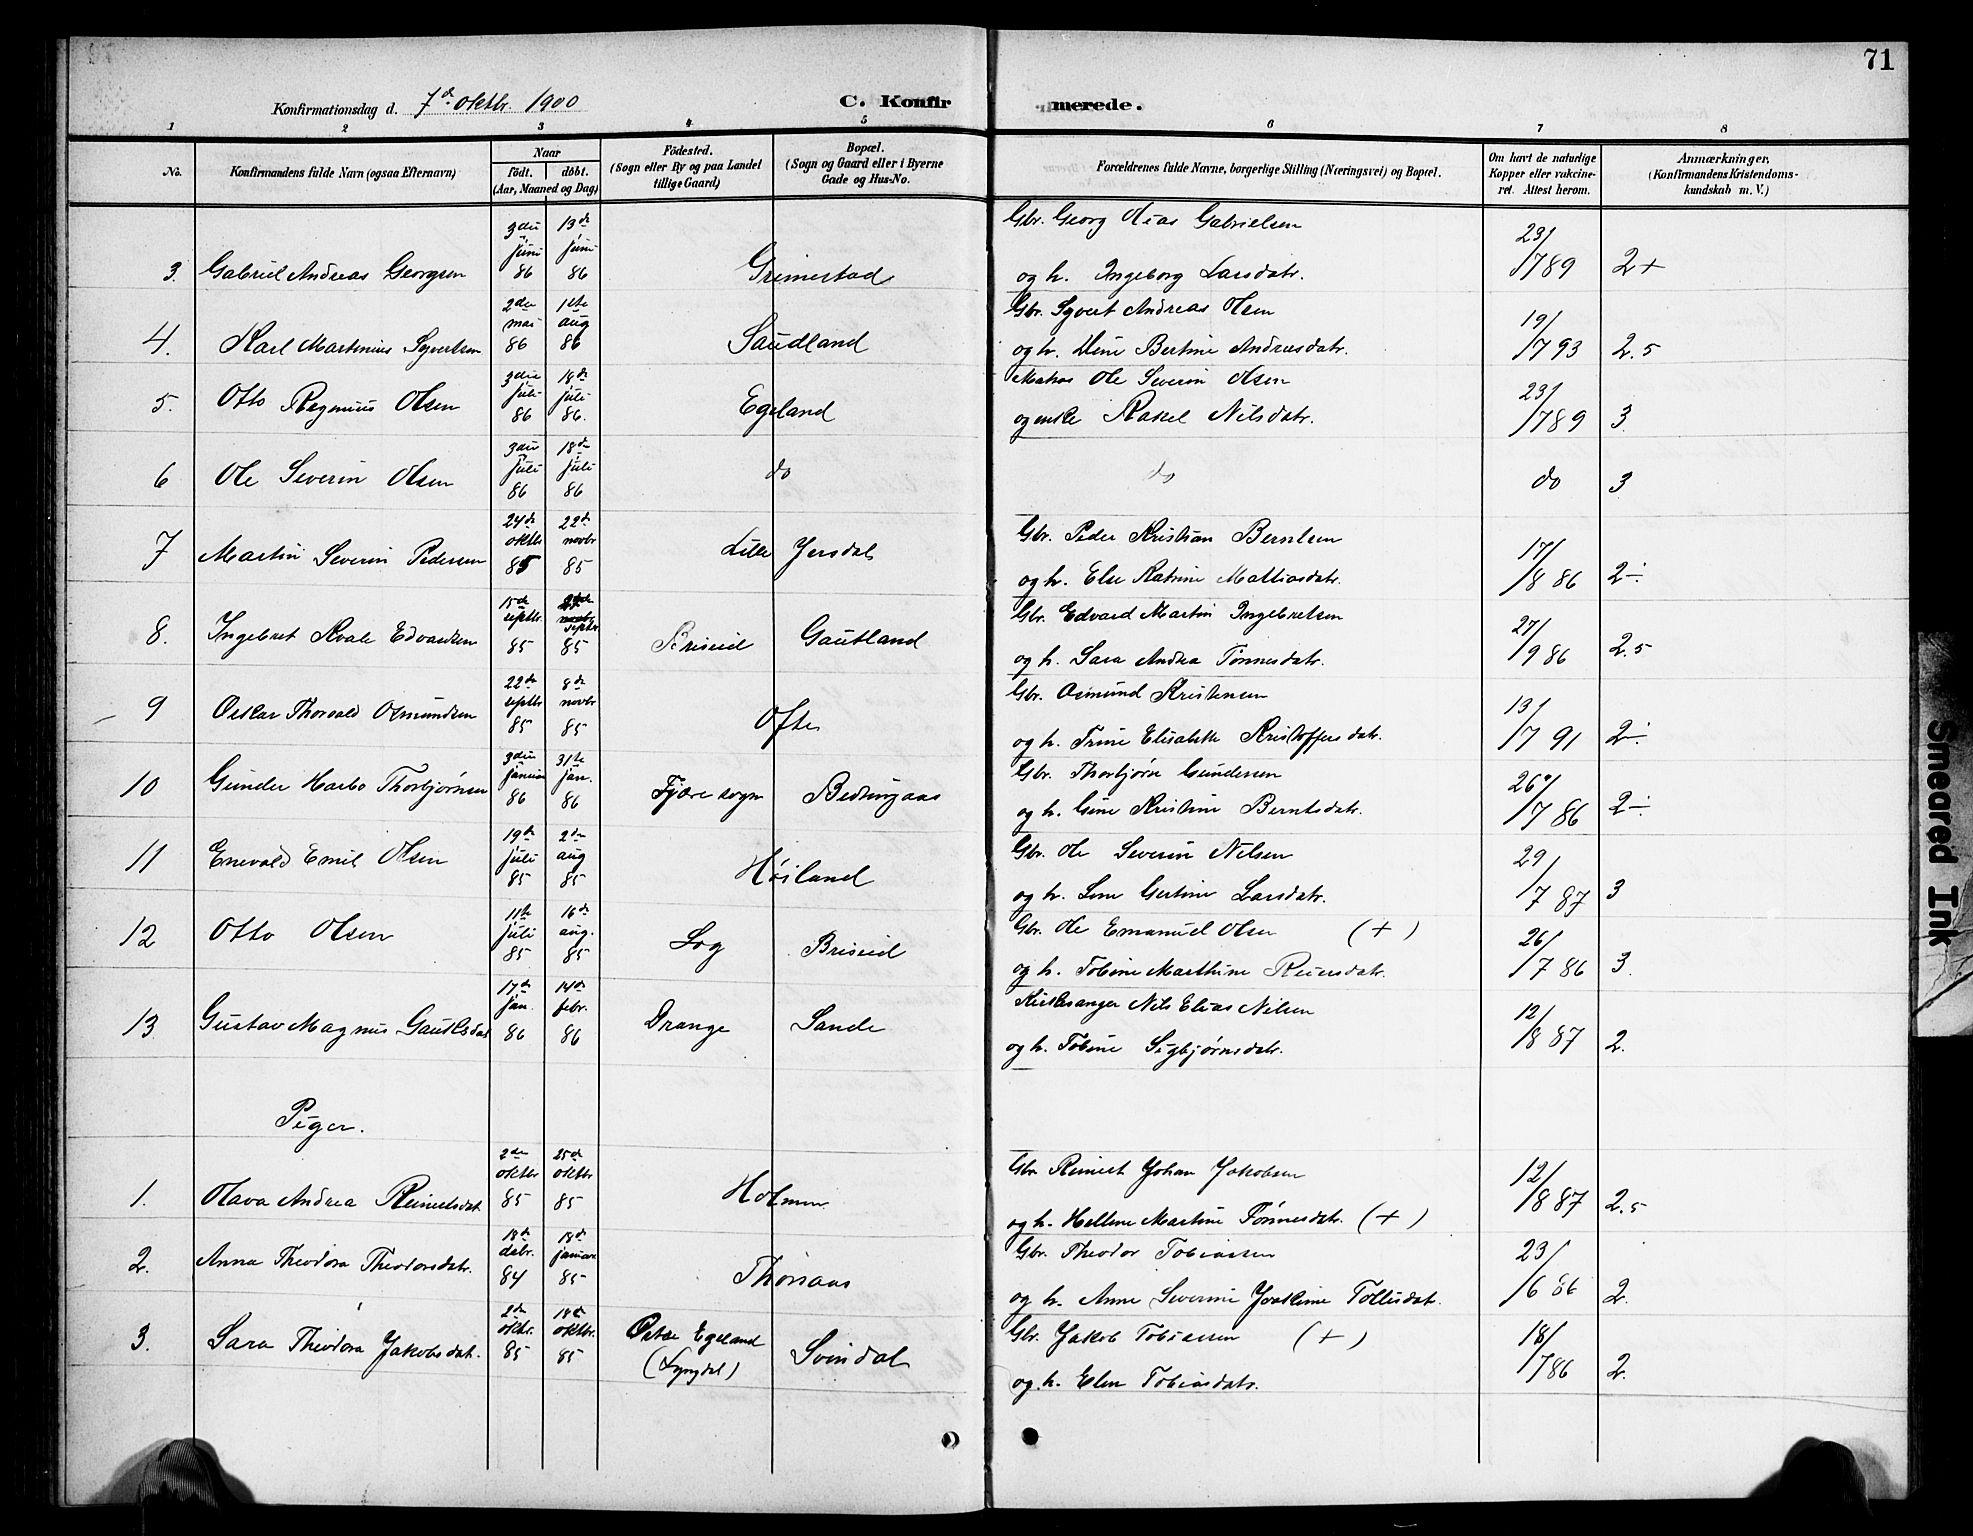 71
Konfirmationsdag d. 7de oktbr. 1900
C. Konfirmerede.
1 2 3 4 5 6 7 8
No.
Konfirmandens fulde Navn (ogsaa Efternavn)
Naar
født. døbt.
(Aar, Maaned og Dag)
Fødested.
(Sogn eller By og paa Landet
tillige Gaard)
Bopæl.
(Sogn og Gaard eller i Byerne
Gade og Hus-No.
Forældrenes fulde Navne, borgerlige Stilling (Næringsvei) og Bopæl.
Om havt de naturlige
Kopper eller vakcine-
ret. Attest herom.
Anmærkninger,
(Konfirmandens Kristendoms-
kundskab m. V.)
3. Gabriel Andreas Georgsen 3die juni 86 13de juni 86 Grimestad Gbr. Georg Elias Gabrielsen
og h. Ingeborg Larsdatr. 23/7 89 2+
4. Karl Martinius Syvertsen 2den mai 86 1ste aug 86 Saudland Gbr. Syvert Andreas Olsen
og h. Line Bertine Andreasdatr. 19/7 93 2.5
5. Otto Regnius Olsen 3die juli 86 18de juli 86. Egeland Ole Severin Olsen
og enke Rakel Nilsdatr. 23/7 89 3
6 Ole Severin Olsen 3die juli 86 18de juli 86 do do do 3
7 Martin Severin Pedersen 24de oktbr 85 22de novbr 85 Lille Jersdal Gbr. Peder Kristian Berntsen
og h. Else Katrine Mathiasdatr. 17/8 86 2÷
8. Ingebret Kvale Edvardsen 15de septbr. 85 septbr. 85 Briseid Gautland Gbr. Edvard Martin Ingebretsen
og h. Sara Andrea Tønnesdatr. 27/9 86 2.5
9 Oskar Thorvald Osmundsen 22de septbr 85 8de novbr 85 Ofte Gbr. Osmund Kristensen
og h. Trine Elisabeth Kristoffersdatr. 13/7 91 2÷
10 Gunder Harbo Thorbjørnsen 3die januar 86 31te jan. 86 Fjære sogn Birkingaas Gbr. Thorbjørn Gundersen
og h. Gine Kristine Berntsdatr. 26/7 86 2÷
11 Enevald Emil Olsen 19de juli 85 2den aug 85 Høiland Gbr. Ole Severin Nilsen
og h. Lene Gertine Larsdatr. 29/7 87 3
12 Otto Olsen 11te juli 85 16de aug. 85 Log Briseid Gbr. Ole Emanuel Olsen (+)
og h. Tobine Marthine Reiersdatr. 26/7 86 3.
13 Gustav Magnus Gautlsdal 17de jan. 86 14de febr. 86 Drange Sande Kirkesanger Nils Elias Nilsen
og h. Tobine Sigbjørnsdatr. 12/8 87 2.
Piger.
1. Olava Andrea Reinertsdat. 2den oktbr 85 25de oktbr 85 Holmen Gbr Reinert Johan Jakobsen
og h. Hellene Martine Tønnesdatr. (+) 12/8 87 2.5
2. Anna Theodora Theodorsdatr. 18de dsbr. 84 18de januar 85 Thorsaas Gbr. Theodor Tobiassen
og h. Anne Severine Joakime Tollisdat. 23/6 86 2.
3. Sara Theodora Jakobsdat. 2den oktbr. 85 18de oktbr. 85 Østre Egeland
(Lyngdal) Svindal Gbr. Jakob Tobiassen (+)
og h. Elen Tobiasdatr. 18/7 86 2.
Smeared Ink